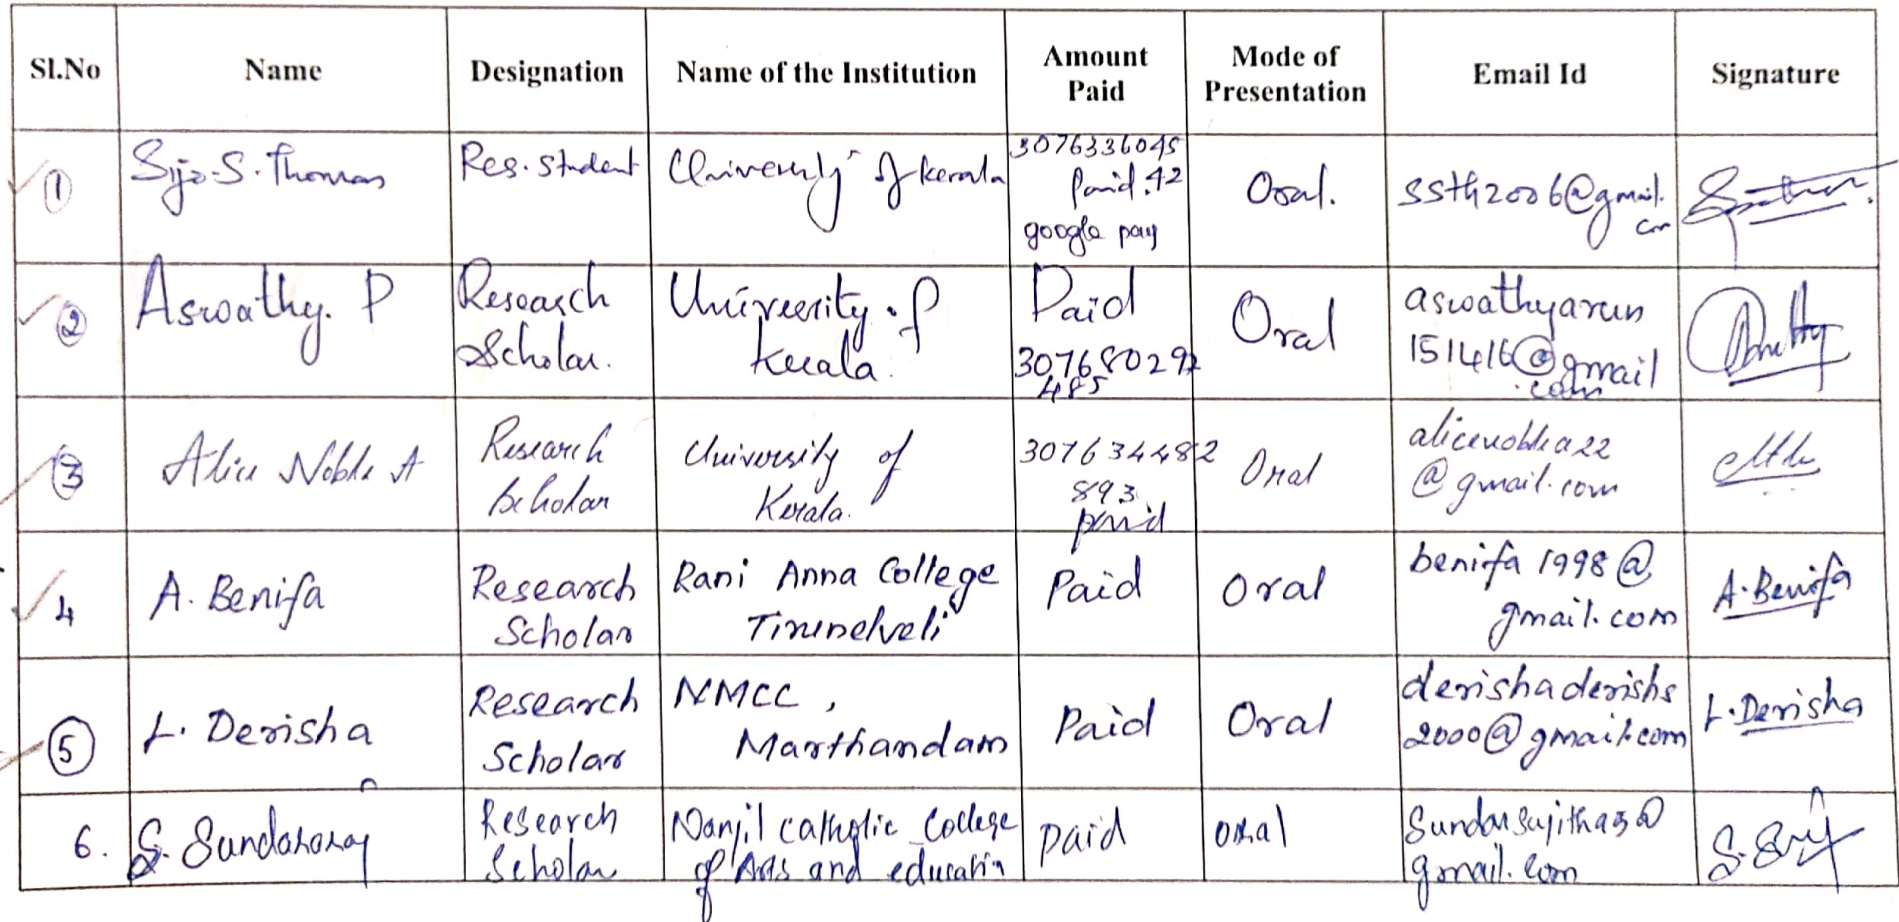 Sl.No Name Designation Name of the Institution Amount Paid Mode of Presentation Email Id Signature
1 Sijo. S. Thomas Res. Student University of kerala 3076336045 Paid .42 google pay Oral. ssth2006@gmail.com
2 Aswathy. P Research Scholar. University of Kerala. Paid 307680292 485 Oral aswathyarun 151416@gmail.com
3 Alice Noble A Research Scholar University of Kerala. 307634482 893 paid Oral alicenoblea22 @gmail.com
4 A. Benifa Research Scholar Rani Anna College Tirunelveli Paid Oral benifa1998@ gmail.com A. Benifa
5 L. Derisha Research Scholar NMCC, Marthandam Paid Oral derishaderishs 2000@gmail.com L. Derisha
6. S. Sundararaj Research Scholar Nanjil catholic College of Arts and education paid oral gmail.com